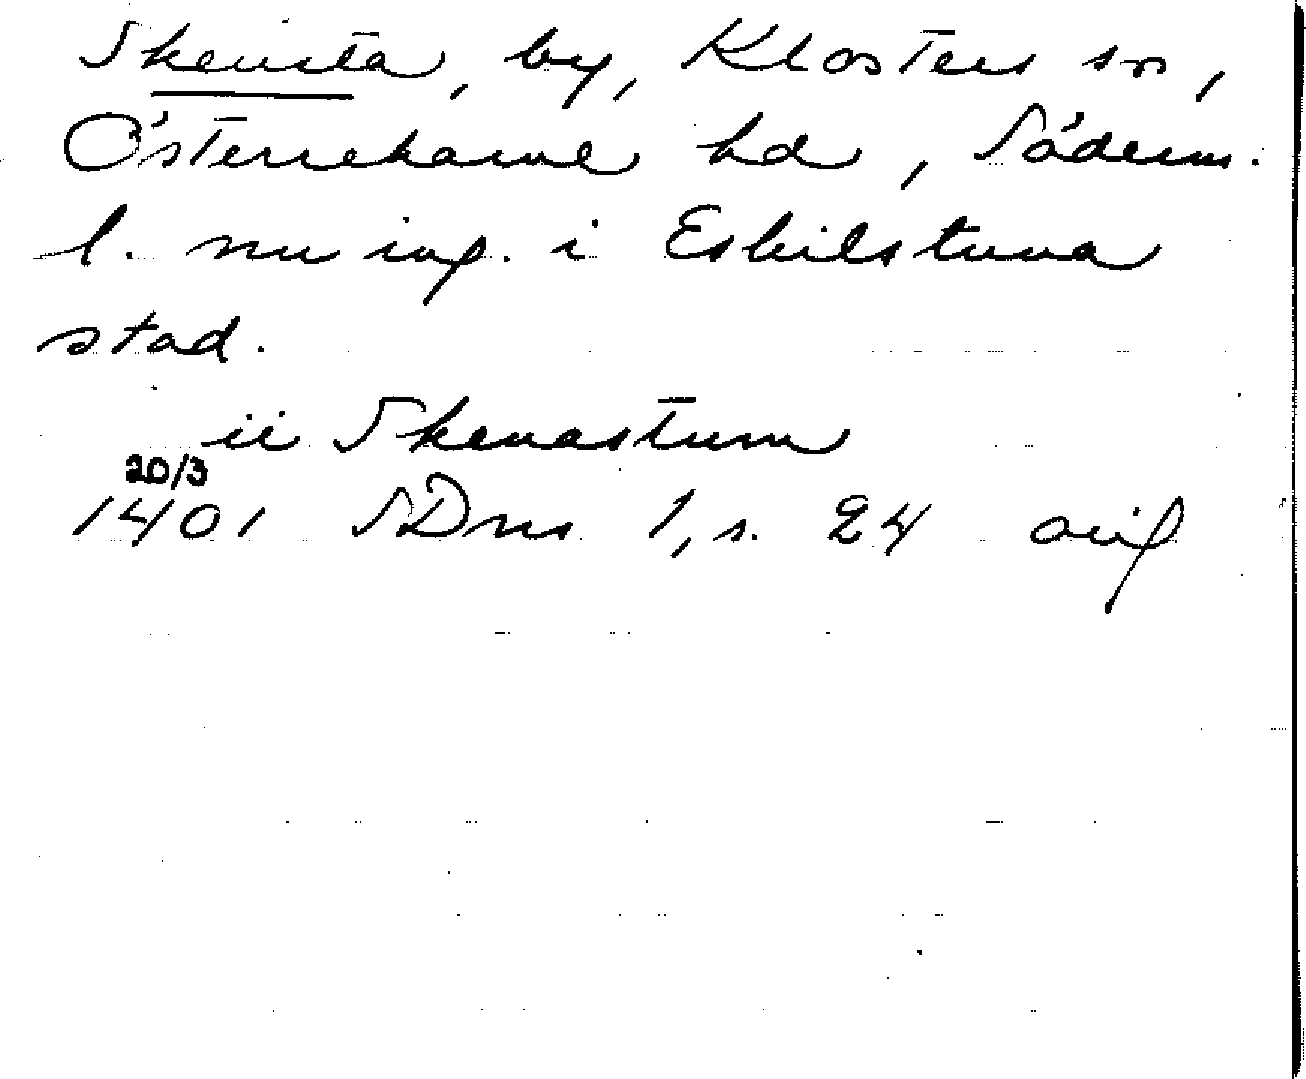 Skensta, by, Klosters sn,
Österrekarne hd, Söderm.
l. nu ing. i Eskilstuna
stad.
ii Skenastum
20/3
1401 SDns 1, s. 24 orig